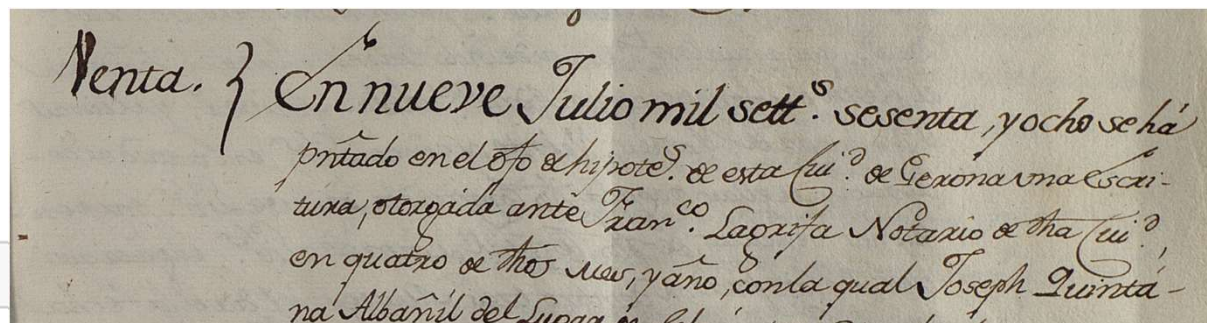 Venta. } En nueve Julio mil settˢ. sesenta, y ocho se há
pñtado en el ofo de hipoteˢ. de esta Ciuᵈ. de Gerona vna Escri-
tura, otorgada ante Franᶜᵒ. Lagrifa Notario de dha Ciuᵈ,
en quatro de dhos mes, y año, con la qual Joseph Quintá-
na Albañil del Lugar de